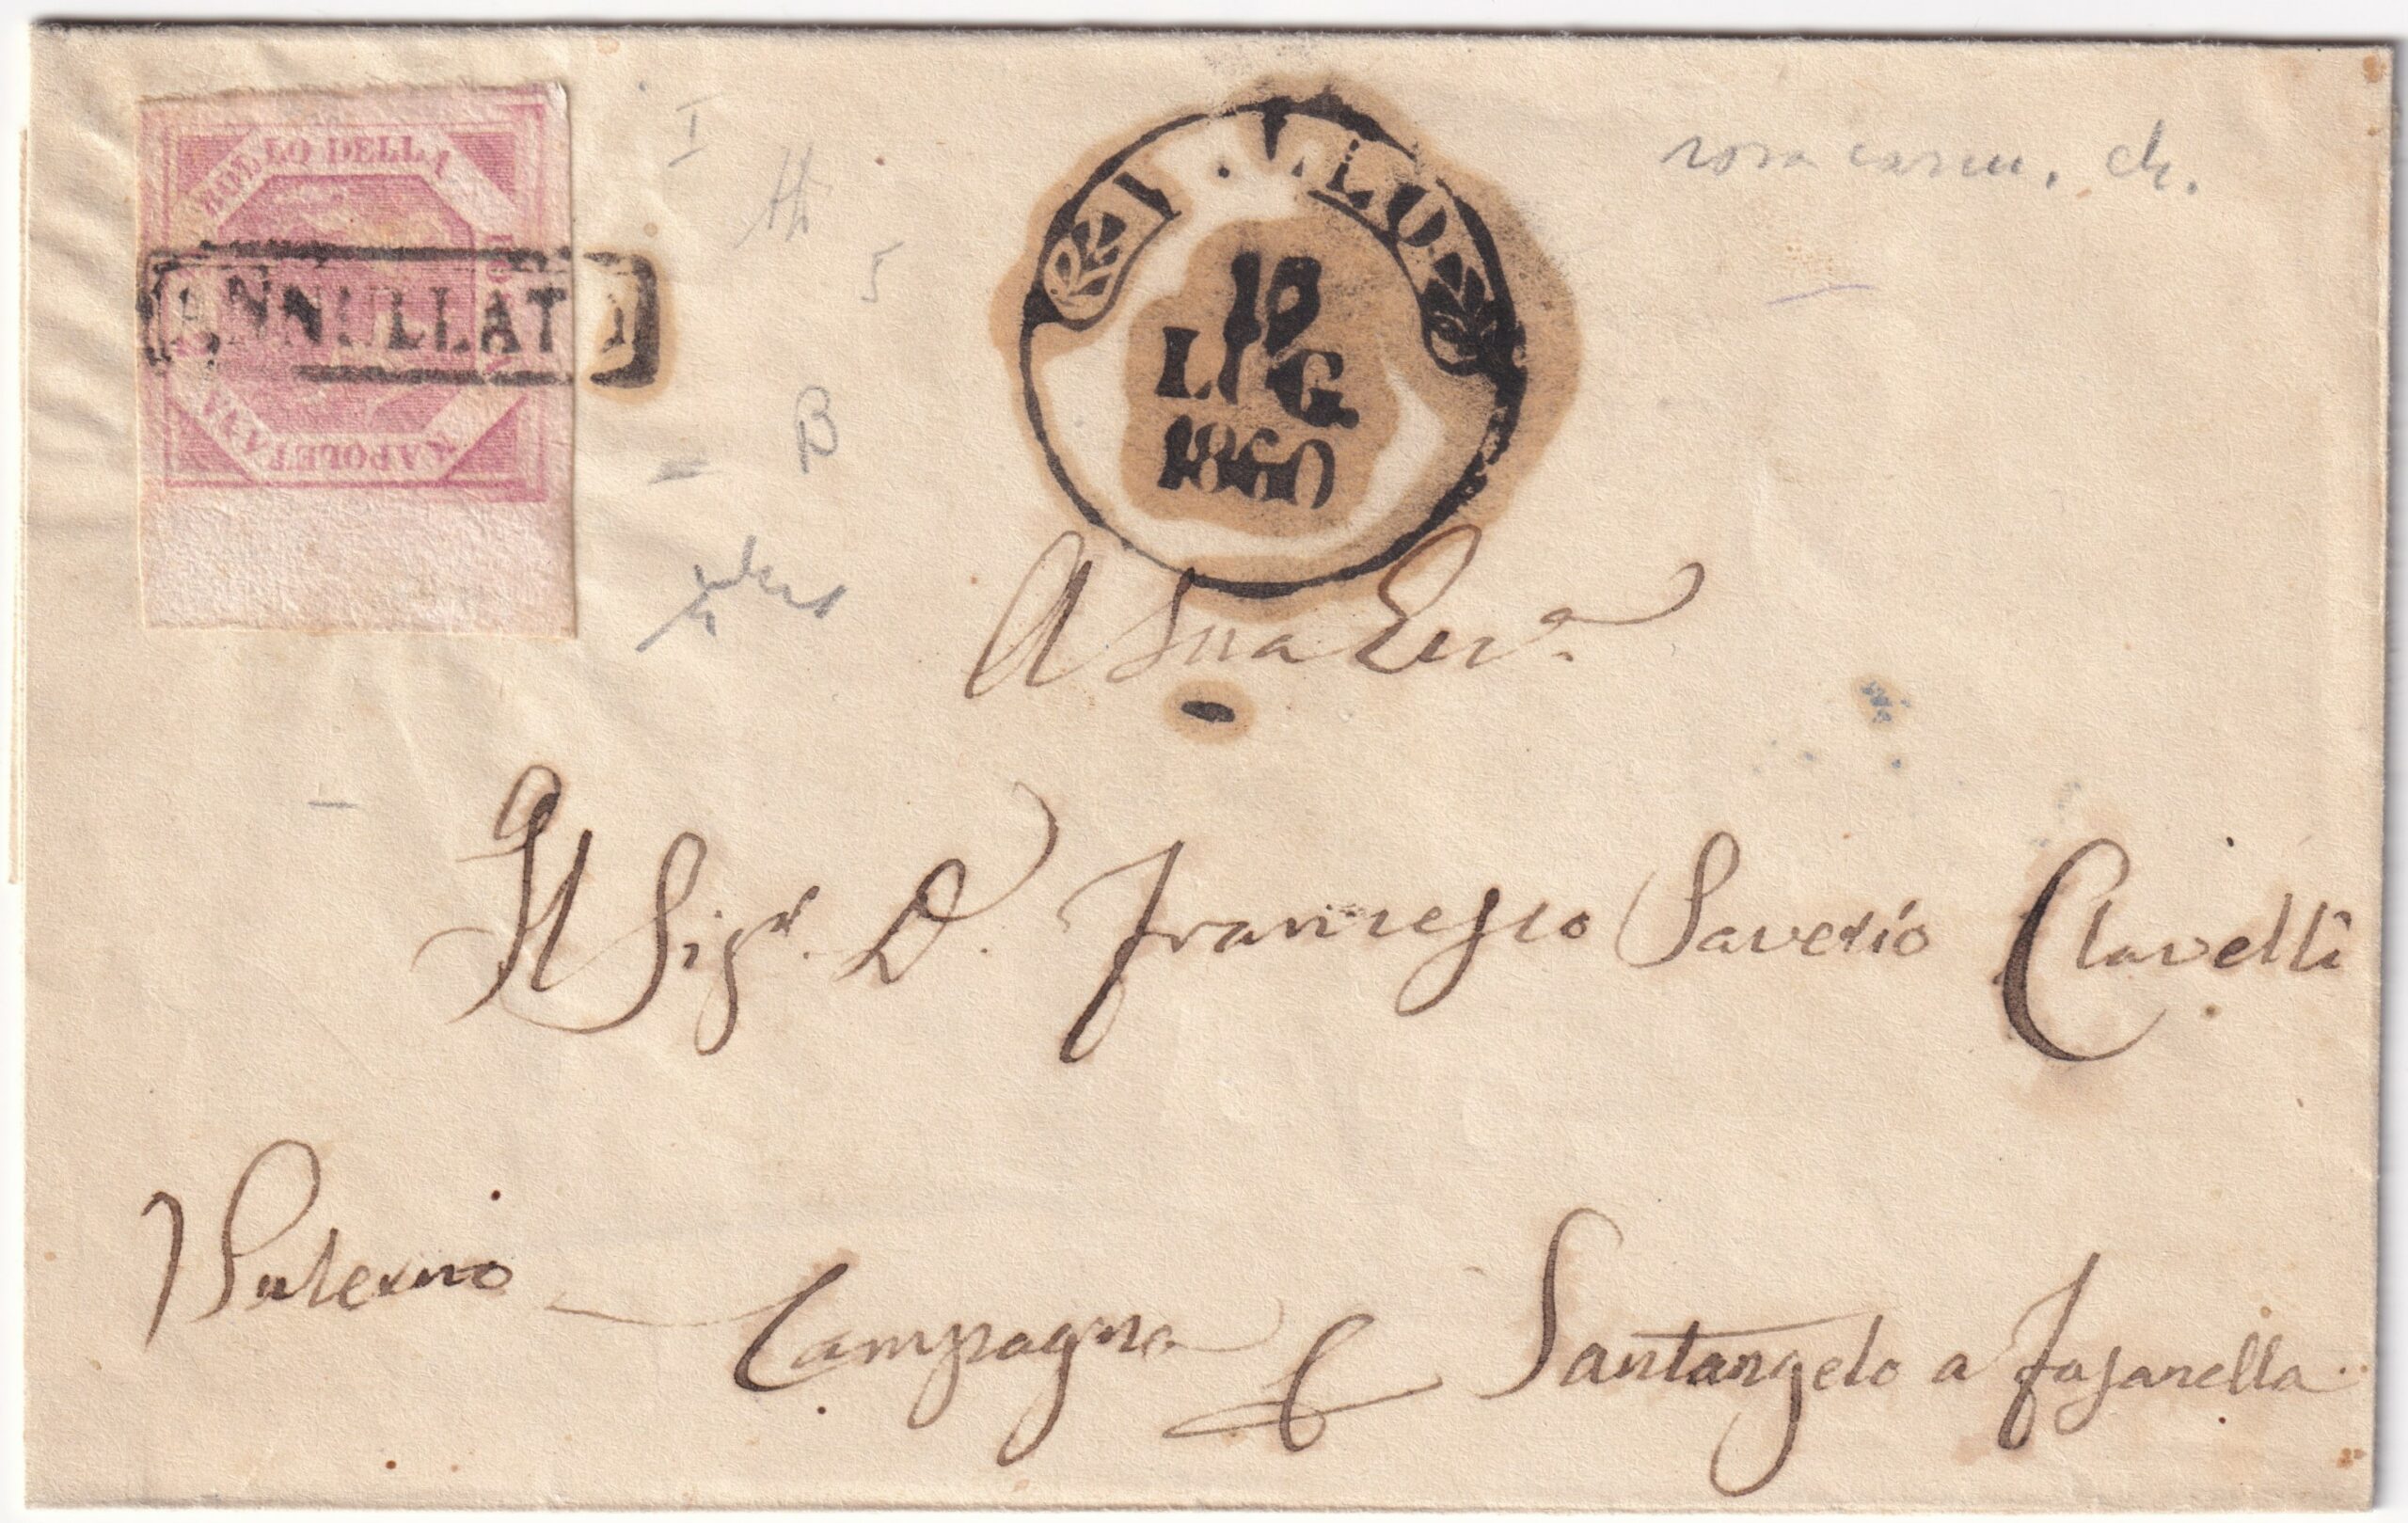 BOLLO DELLA
NAPOLETANA
ANNULLATO
18
LUG
1860
rosa carm. ch.
I
5
B
A Sua Ecc.ª
Il Sigr. D. Francesco Saverio Clavelli
Salerno
Campagna
Santangelo a Fasanella